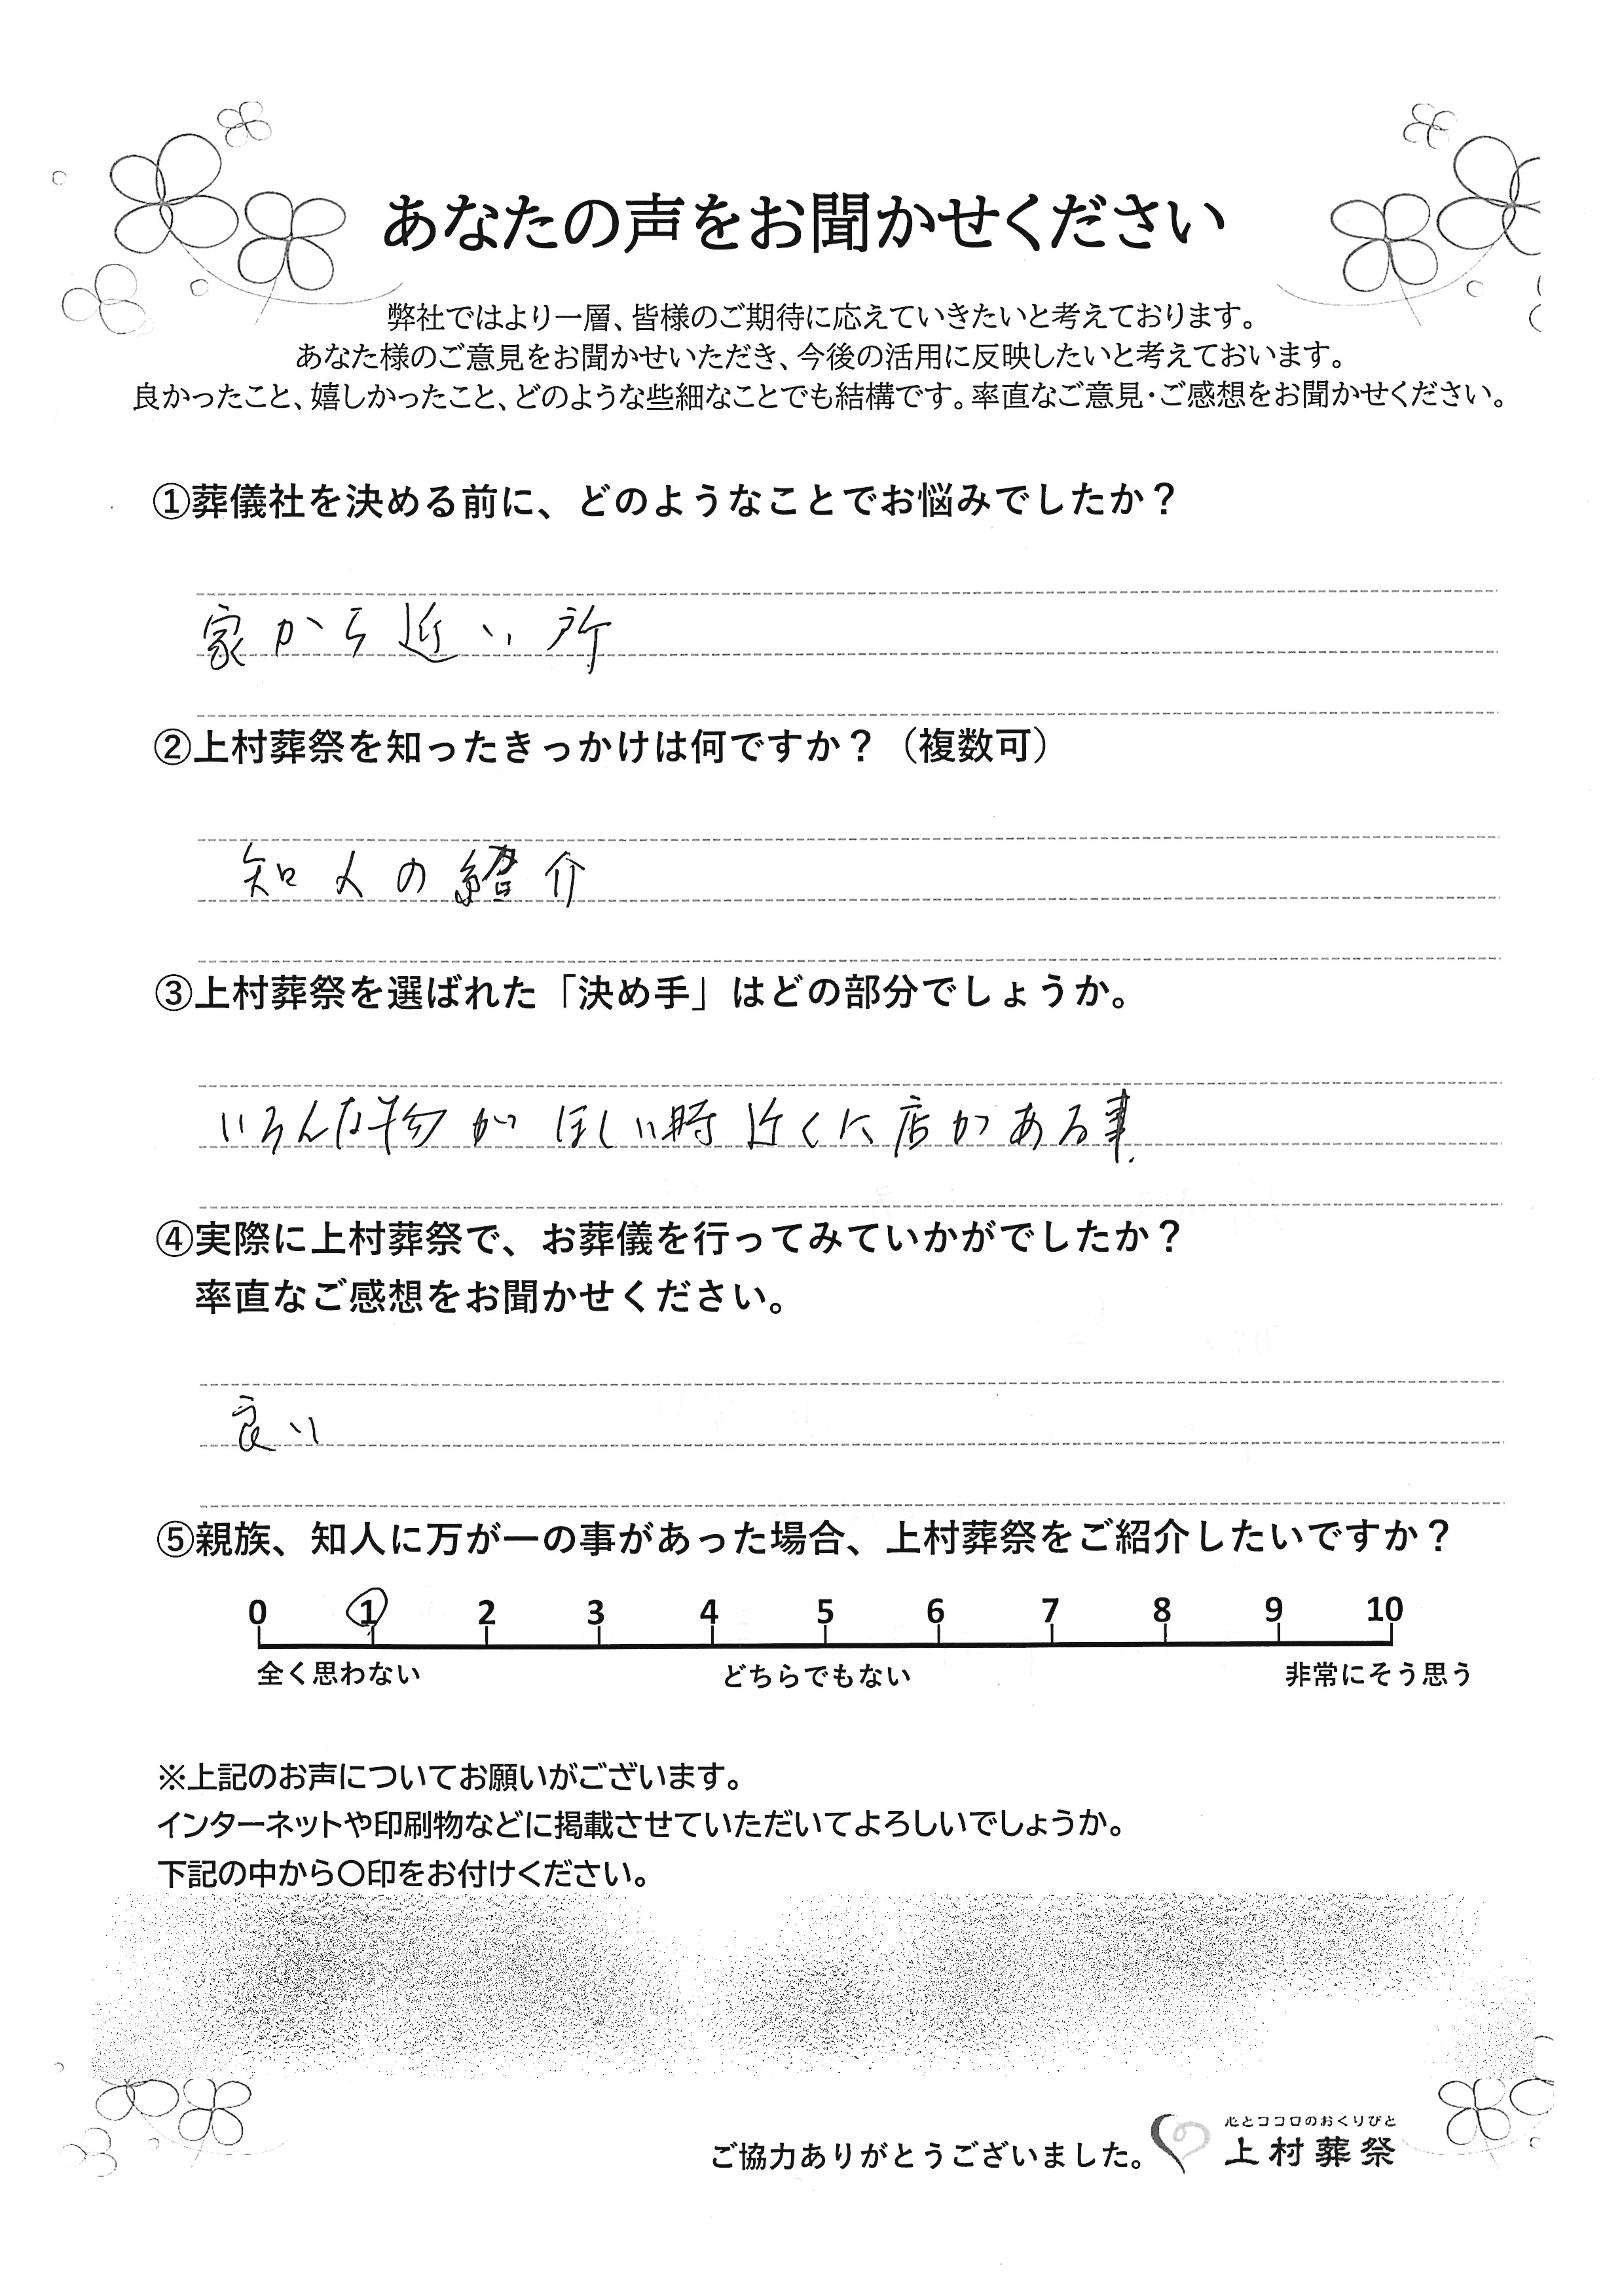 あなたの声をお聞かせください
弊社ではより一層、皆様のご期待に応えていきたいと考えております。
あなた様のご意見をお聞かせいただき、今後の活用に反映したいと考えておいます。
良かったこと、嬉しかったこと、どのような些細なことでも結構です。率直なご意見・ご感想をお聞かせください。
①葬儀社を決める前に、どのようなことでお悩みでしたか？
家から近い所
②上村葬祭を知ったきっかけは何ですか？（複数可）
知人の紹介
③上村葬祭を選ばれた「決め手」はどの部分でしょうか。
いろんな物がほしい時近くに店がある事.
④実際に上村葬祭で、お葬儀を行ってみていかがでしたか？
率直なご感想をお聞かせください。
良い
⑤親族、知人に万が一の事があった場合、上村葬祭をご紹介したいですか？
0 1 2 3 4 5 6 7 8 9 10
全く思わない どちらでもない 非常にそう思う
※上記のお声についてお願いがございます。
インターネットや印刷物などに掲載させていただいてよろしいでしょうか。
下記の中から〇印をお付けください。
心とココロのおくりびと
ご協力ありがとうございました。 上村葬祭